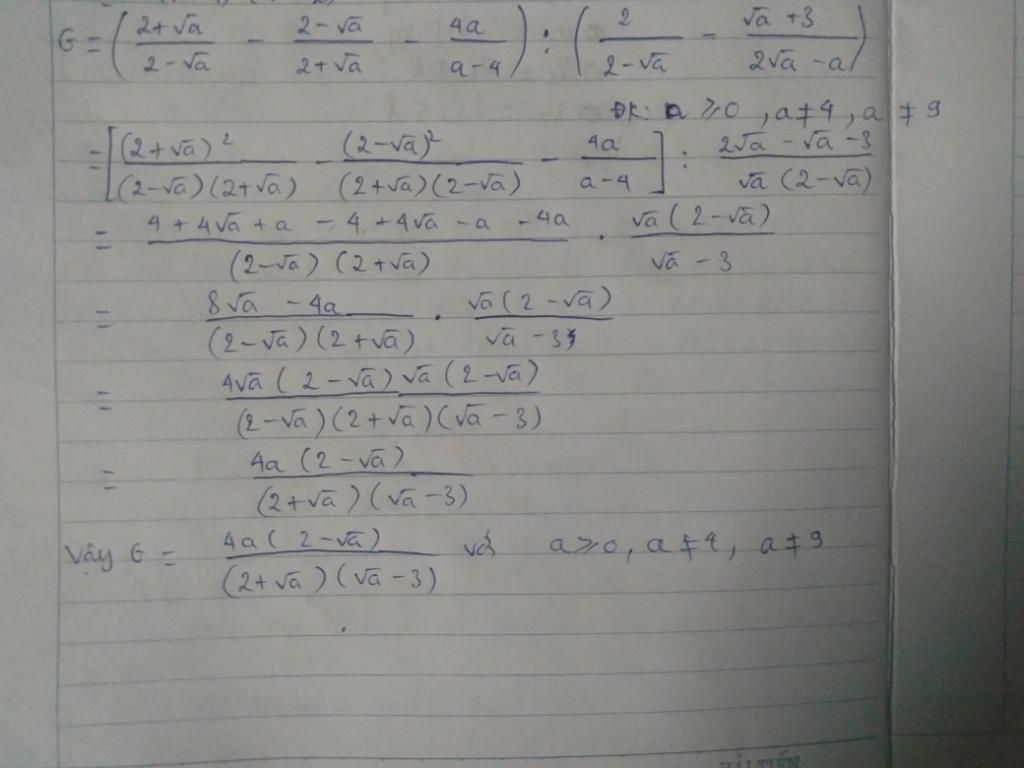 G = ( (2+√a)/(2-√a) - (2-√a)/(2+√a) - 4a/(a-4) ) : ( 2/(2-√a) - (√a+3)/(2√a-a) )
ĐK: a ≥0 , a≠4, a ≠ 9
= [ (2+√a)²/((2-√a)(2+√a)) - (2-√a)²/((2+√a)(2-√a)) - 4a/(a-4) ] : (2√a-√a-3)/(√a(2-√a))
= (4+4√a+a-4+4√a-a-4a)/((2-√a)(2+√a)) . √a(2-√a)/(√a-3)
= (8√a-4a)/((2-√a)(2+√a)) . √a(2-√a)/(√a-3)
= 4√a(2-√a)√a(2-√a)/((2-√a)(2+√a)(√a-3))
= 4a(2-√a)/((2+√a)(√a-3))
Vậy G = 4a(2-√a)/((2+√a)(√a-3)) với a≥0, a≠4, a≠9
HẢI TIẾN